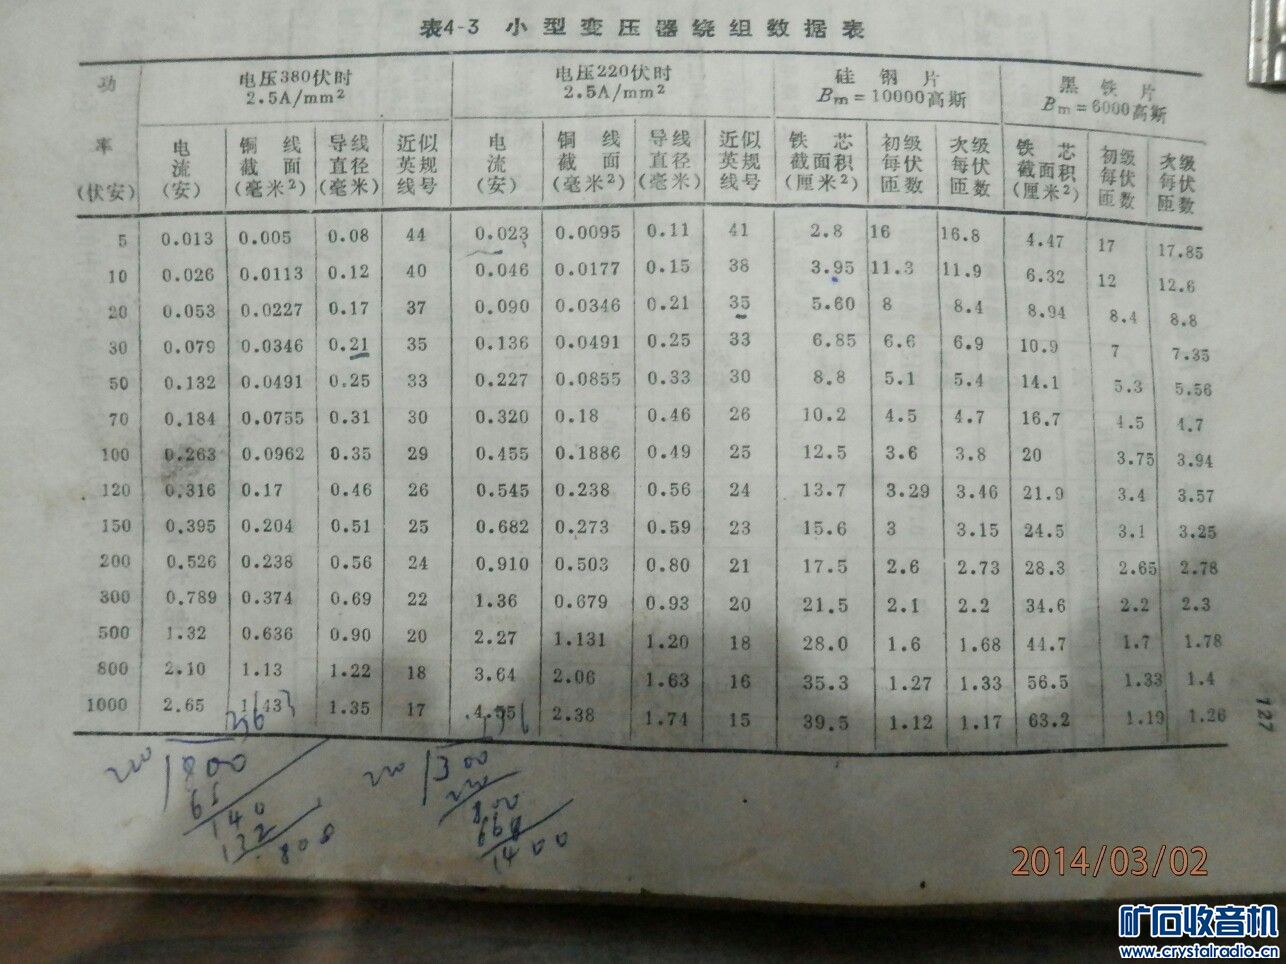 表4-3 小型变压器绕组数据表
功率(伏安) 电压380伏时 2.5A/mm² 电压220伏时 2.5A/mm² 硅钢片 Bm=10000高斯 黑铁片 Bm=6000高斯
电流(安) 铜线截面(毫米²) 导线直径(毫米) 近似英规线号 电流(安) 铜线截面(毫米²) 导线直径(毫米) 近似英规线号 铁芯截面积(厘米²) 初级每伏匝数 次级每伏匝数 铁芯截面积(厘米²) 初级每伏匝数 次级每伏匝数
5 0.013 0.005 0.08 44 0.023 0.0095 0.11 41 2.8 16 16.8 4.47 17 17.85
10 0.026 0.0113 0.12 40 0.046 0.0177 0.15 38 3.95 11.3 11.9 6.32 12 12.6
20 0.053 0.0227 0.17 37 0.090 0.0346 0.21 35 5.60 8 8.4 8.94 8.4 8.8
30 0.079 0.0346 0.21 35 0.136 0.0491 0.25 33 6.85 6.6 6.9 10.9 7 7.35
50 0.132 0.0491 0.25 33 0.227 0.0855 0.33 30 8.8 5.1 5.4 14.1 5.3 5.56
70 0.184 0.0755 0.31 30 0.320 0.18 0.46 26 10.2 4.5 4.7 16.7 4.5 4.7
100 0.263 0.0962 0.35 29 0.455 0.1886 0.49 25 12.5 3.6 3.8 20 3.75 3.94
120 0.316 0.17 0.46 26 0.545 0.238 0.56 24 13.7 3.29 3.46 21.9 3.4 3.57
150 0.395 0.204 0.51 25 0.682 0.273 0.59 23 15.6 3 3.15 24.5 3.1 3.25
200 0.526 0.238 0.56 24 0.910 0.503 0.80 21 17.5 2.6 2.73 28.3 2.65 2.78
300 0.789 0.374 0.69 22 1.36 0.679 0.93 20 21.5 2.1 2.2 34.6 2.2 2.3
500 1.32 0.636 0.90 20 2.27 1.131 1.20 18 28.0 1.6 1.68 44.7 1.7 1.78
800 2.10 1.13 1.22 18 3.64 2.06 1.63 16 35.3 1.27 1.33 56.5 1.33 1.4
1000 2.65 1.43 1.35 17 4.55 2.38 1.74 15 39.5 1.12 1.17 63.2 1.19 1.26
127
220 800 220 300
140 800
132 660
800 1400
2014/03/02
矿石收音机
www.crystalradio.cn